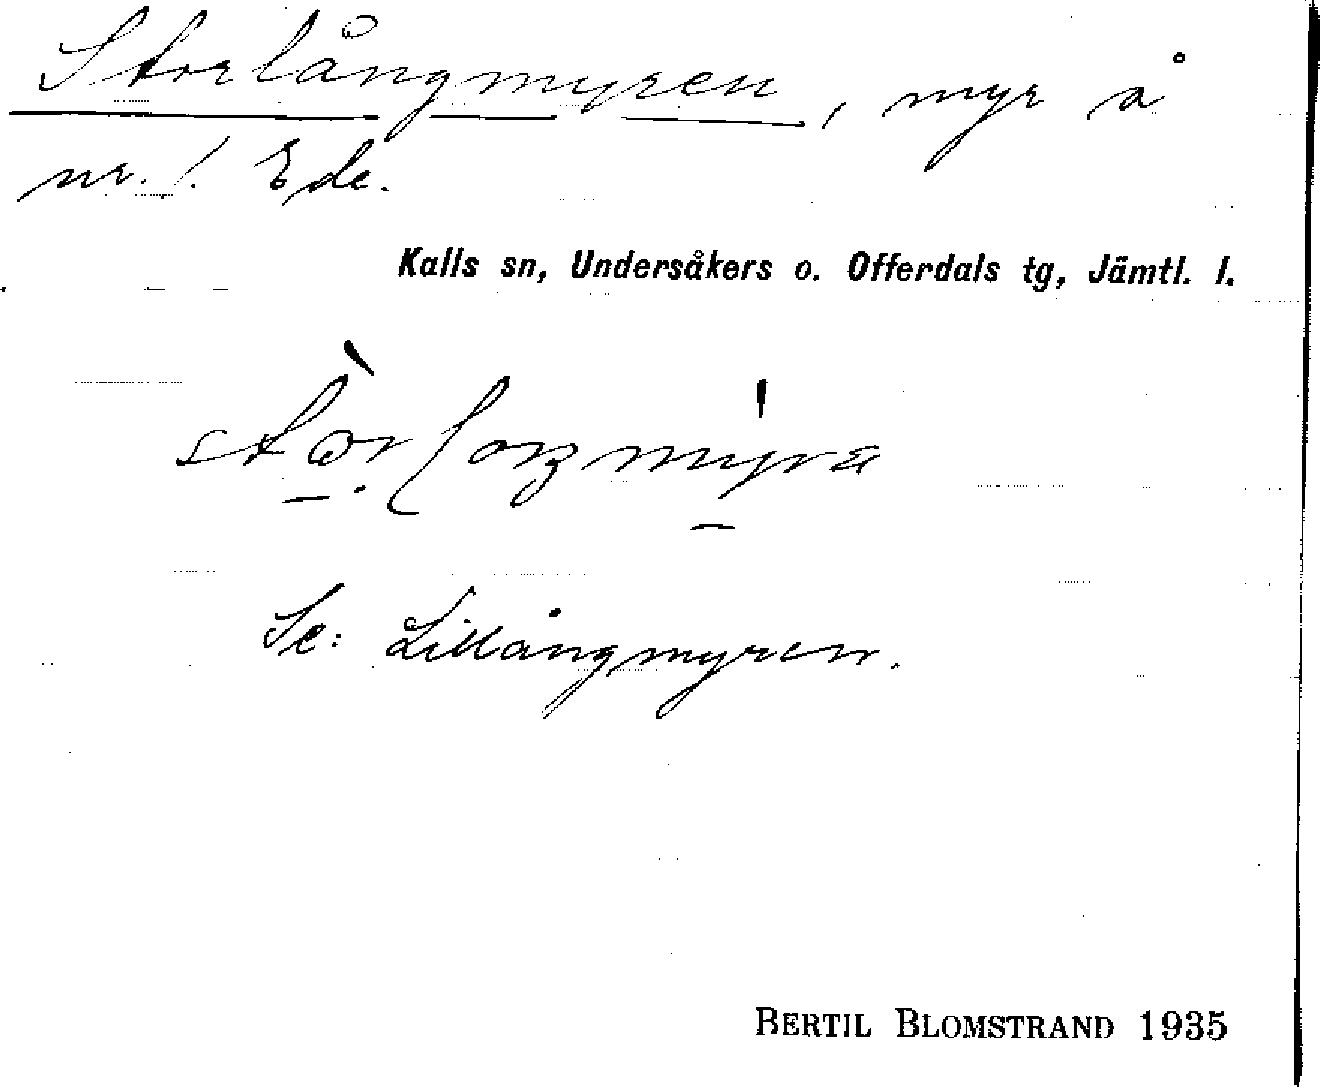 Storlångmyren, myr å
nr. 1. Ede.
Kalls sn, Undersåkers o. Offerdals tg, Jämtl. l.
Se: Lillångmyren.
BERTIL BLOMSTRAND 1935